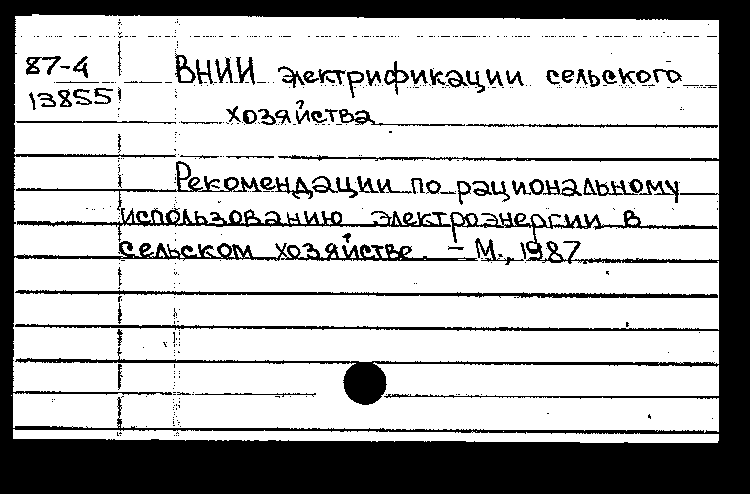 87-4
13855
ВНИИ электрификации сельского
хозяйства
Рекомендации по рациональному
использованию электроэнергии в
сельском хозяйстве. - М., 1987